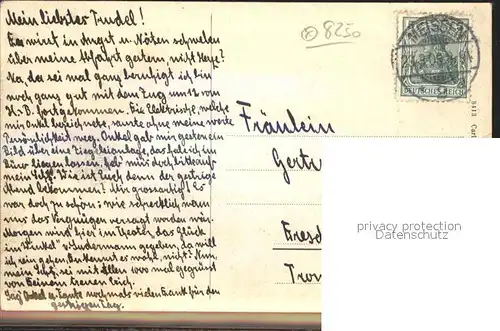 Mein liebster Trudel!
Du wirst in Angst u. Nöten schweben
über meine Abfahrt gestern, nicht Herze?
Na, da sei mal ganz beruhigt ich bin
noch ganz gut mit dem Zug um 12 vom
H.-B. fortgekommen. Die Elektrische, welche
mir Onkel bezeichnete, rannte ohne meine werte
Persönlichkeit weg. Onkel gab mir gestern ein
Bild über eine Ziegleianlage, das hab ich im
liegenlassen, heb' mir's doch bitte auf
mein Schatz. Wie ist Euch denn der gestrige
Abend bekommen? Mir grossartig! Es
war doch zu schön; wie schrecklich wenn
uns das Vergnügen versagt worden wär.
Morgen wird hier im Theater „das Glück
im Winkel" v. Sudermann gegeben, da will
ich rein gehen. Du kennst es wohl, nicht? Nun,
mein Schatz, sei mit Allem 1000 mal gegrüsst
von Deinem treuen Erich.
Sag Onkel u. Tante nochmals vielen Dank für den
gestrigen Tag.
8250
MEISSEN
DEUTSCHES REICH
Fräulein
Gertr
Dresd
privacy protection
Datenschutz